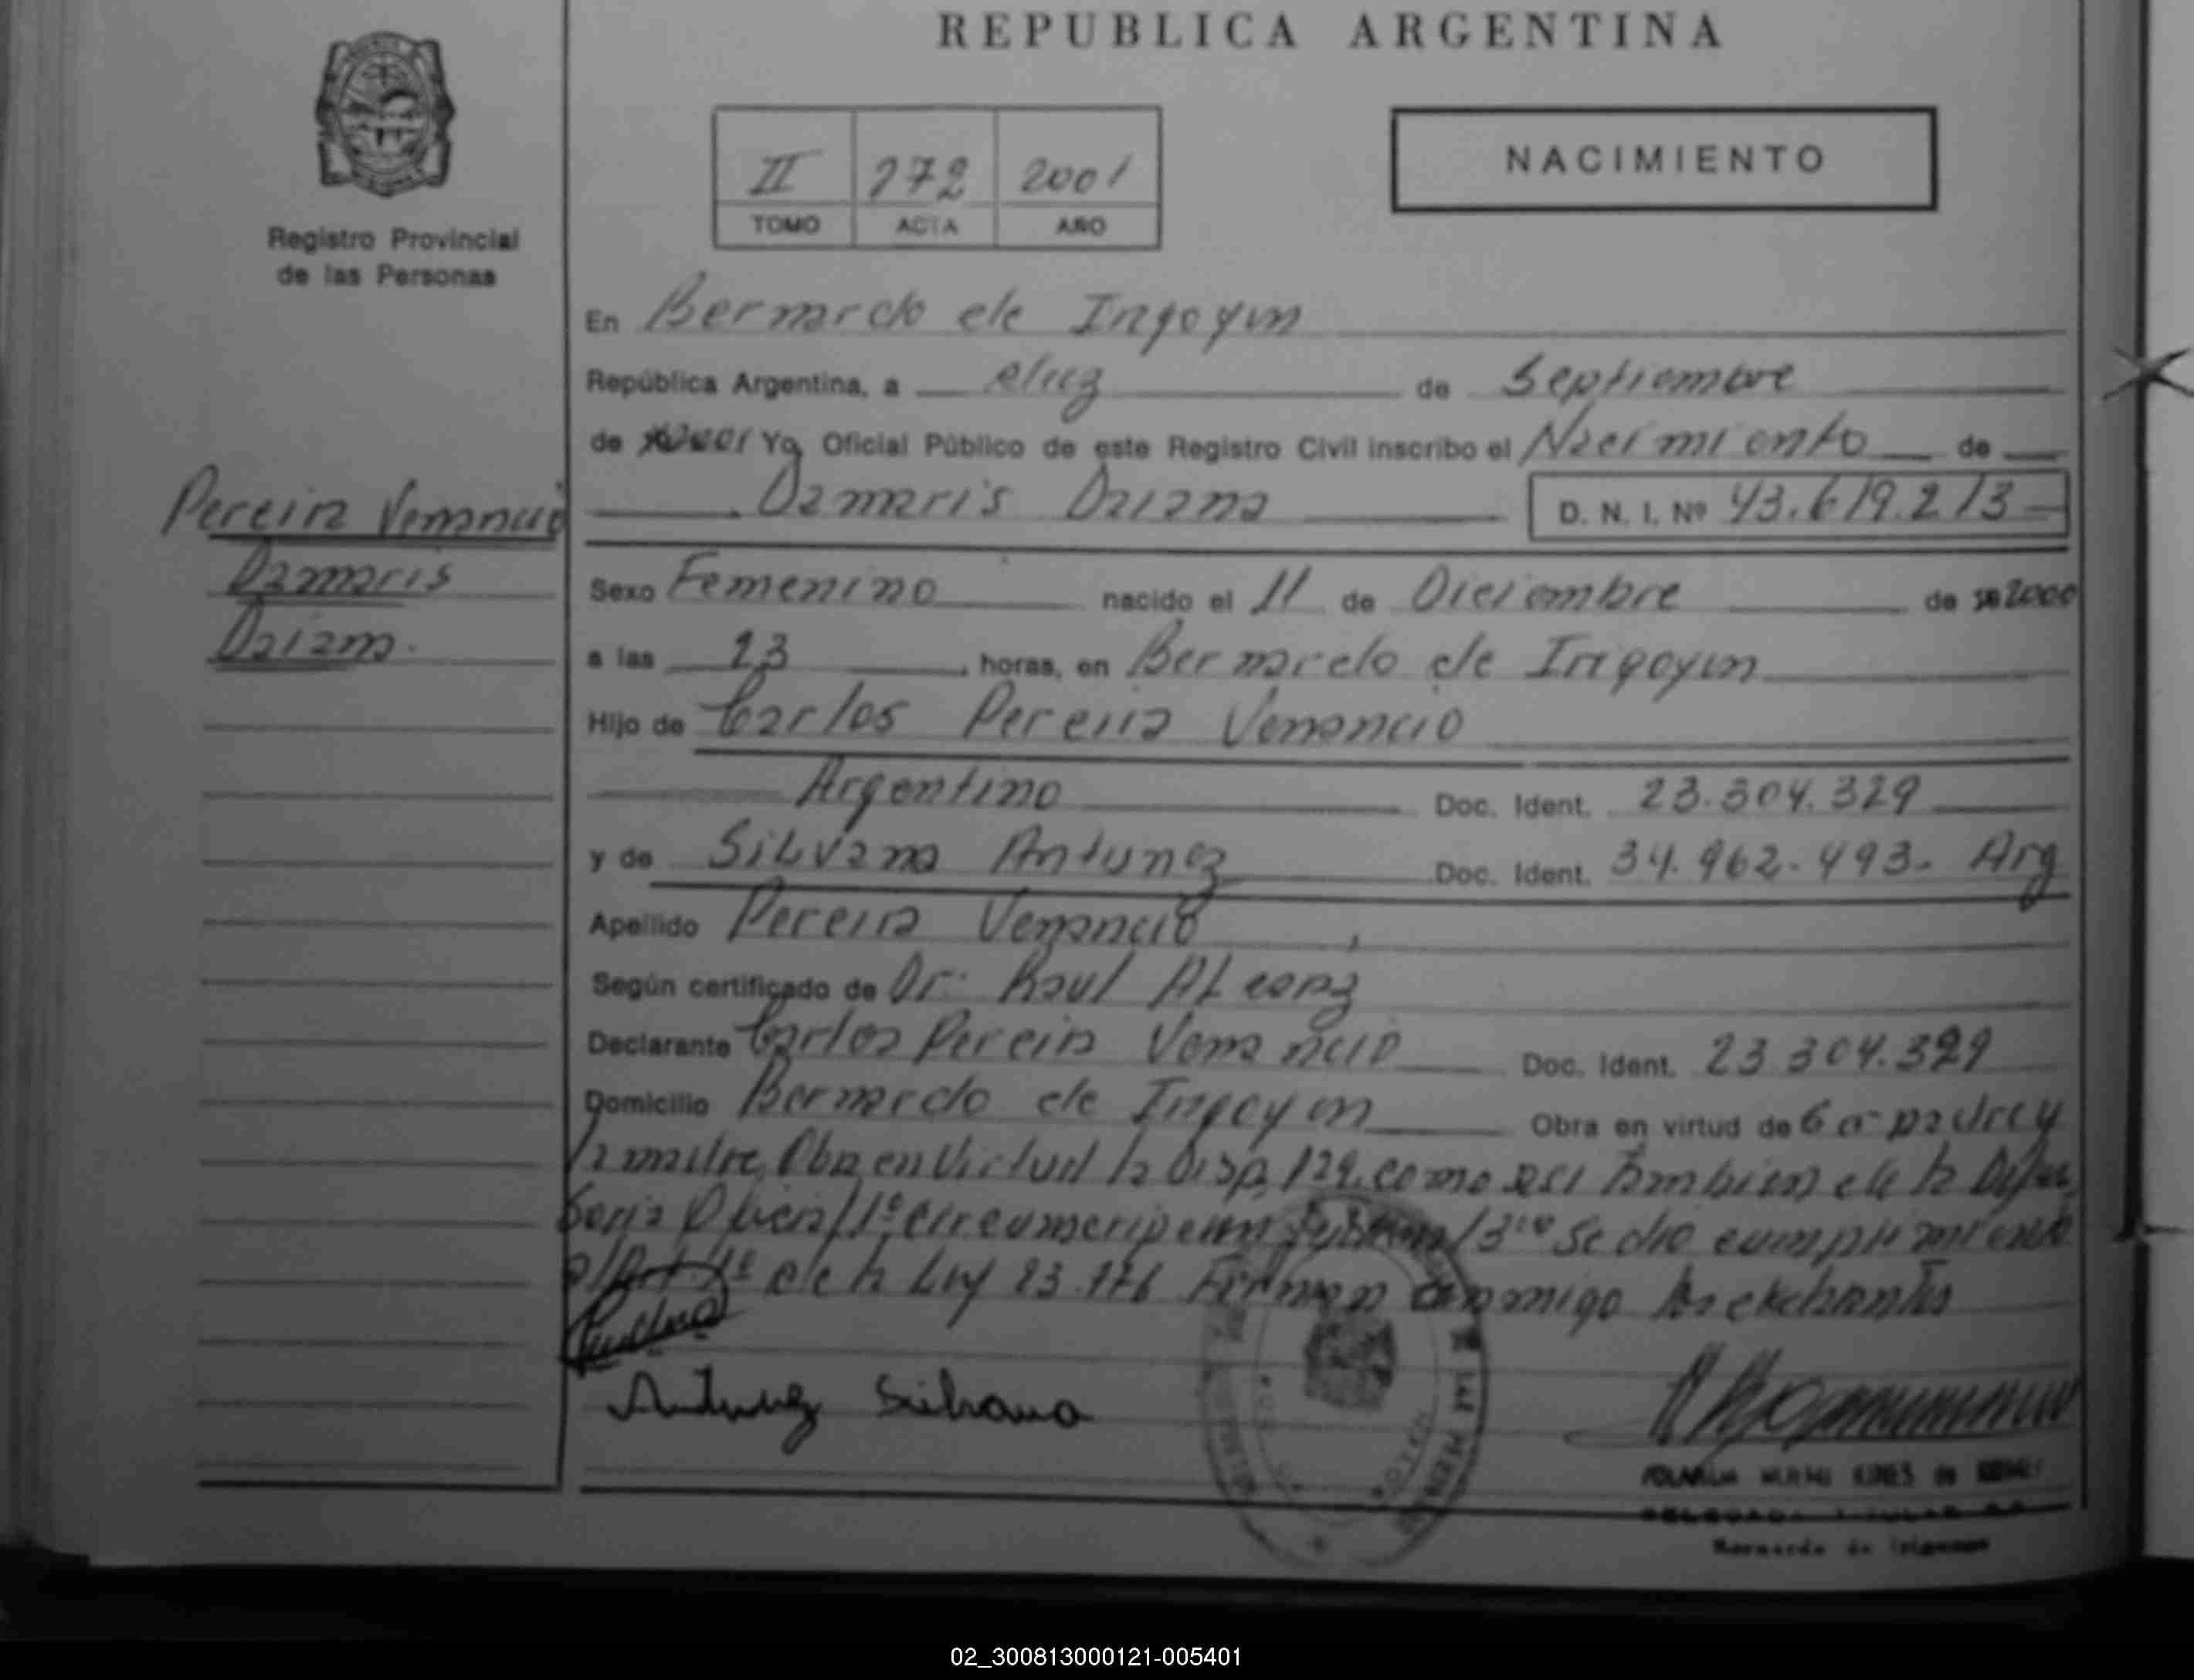 REPUBLICA ARGENTINA
NACIMIENTO
II 272 2001
TOMO ACTA AÑO
Registro Provincial
de las Personas
En Bernardo de Irigoyen
República Argentina, a diez de Septiembre
de Yo, Oficial Público de este Registro Civil inscribo el Nacimiento de
Damaris Daiana D. N. I. Nº 43.619.213
Pereira Venancio
Damaris
Daiana.
Sexo Femenino nacido el 11 de Diciembre de 2000
a las 23 horas, en Bernardo de Irigoyen
Hijo de Carlos Pereira Venancio
Argentino Doc. Ident. 23.304.329
y de Silvana Antunez Doc. Ident. 34.962.493. Arg
Apellido Pereira Venancio
Según certificado de Dr. Raul
Declarante Carlos Pereira Venancio Doc. Ident. 23.304.329
Domicilio Bernardo de Irigoyen Obra en virtud de padre y
la madre, Obra en Virtud la Disp, 129. como asi tambien de la
Oficial 1º circunscripcion Se dio cumplimiento
Art 1º de la Ley 23.776 Firman conmigo los declarantes
Antunez Silvana
Bernardo de Irigoyen
02_300813000121-005401